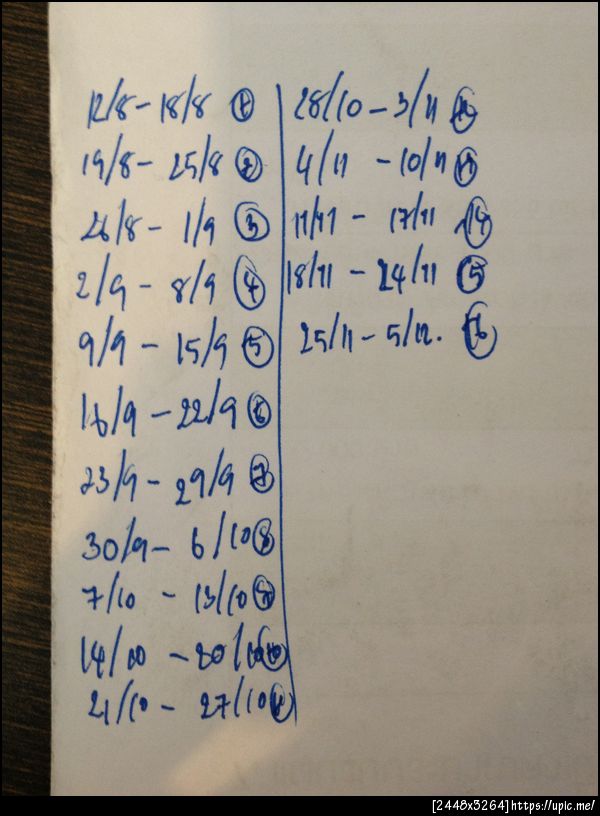 12/8 - 18/8 1
19/8 - 25/8 2
26/8 - 1/9 3
2/9 - 8/9 4
9/9 - 15/9 5
16/9 - 22/9 6
23/9 - 29/9 7
30/9 - 6/10 8
7/10 - 13/10 9
14/10 - 20/10 10
21/10 - 27/10 11
28/10 - 3/11 12
4/11 - 10/11 13
11/11 - 17/11 14
18/11 - 24/11 15
25/11 - 5/12. 16
[2448x3264]https://upic.me/